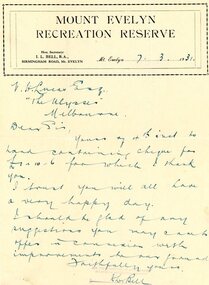 MOUNT EVELYN
RECREATION RESERVE
Hon. Secretary
I. L. BELL, B.A.,
BIRMINGHAM ROAD, Mt. EVELYN
Mt. Evelyn 7. 3. 1931.
Esq.
"The Ulysses"
Melbourne
Dear Sir
Yours of 4th inst to
hand containing cheque for
for which I thank
you.
I trust you will all have
a very happy day.
I should be glad of any
suggestions you may care to
offer in connexion with
improvements
Faithfully yours
Bell